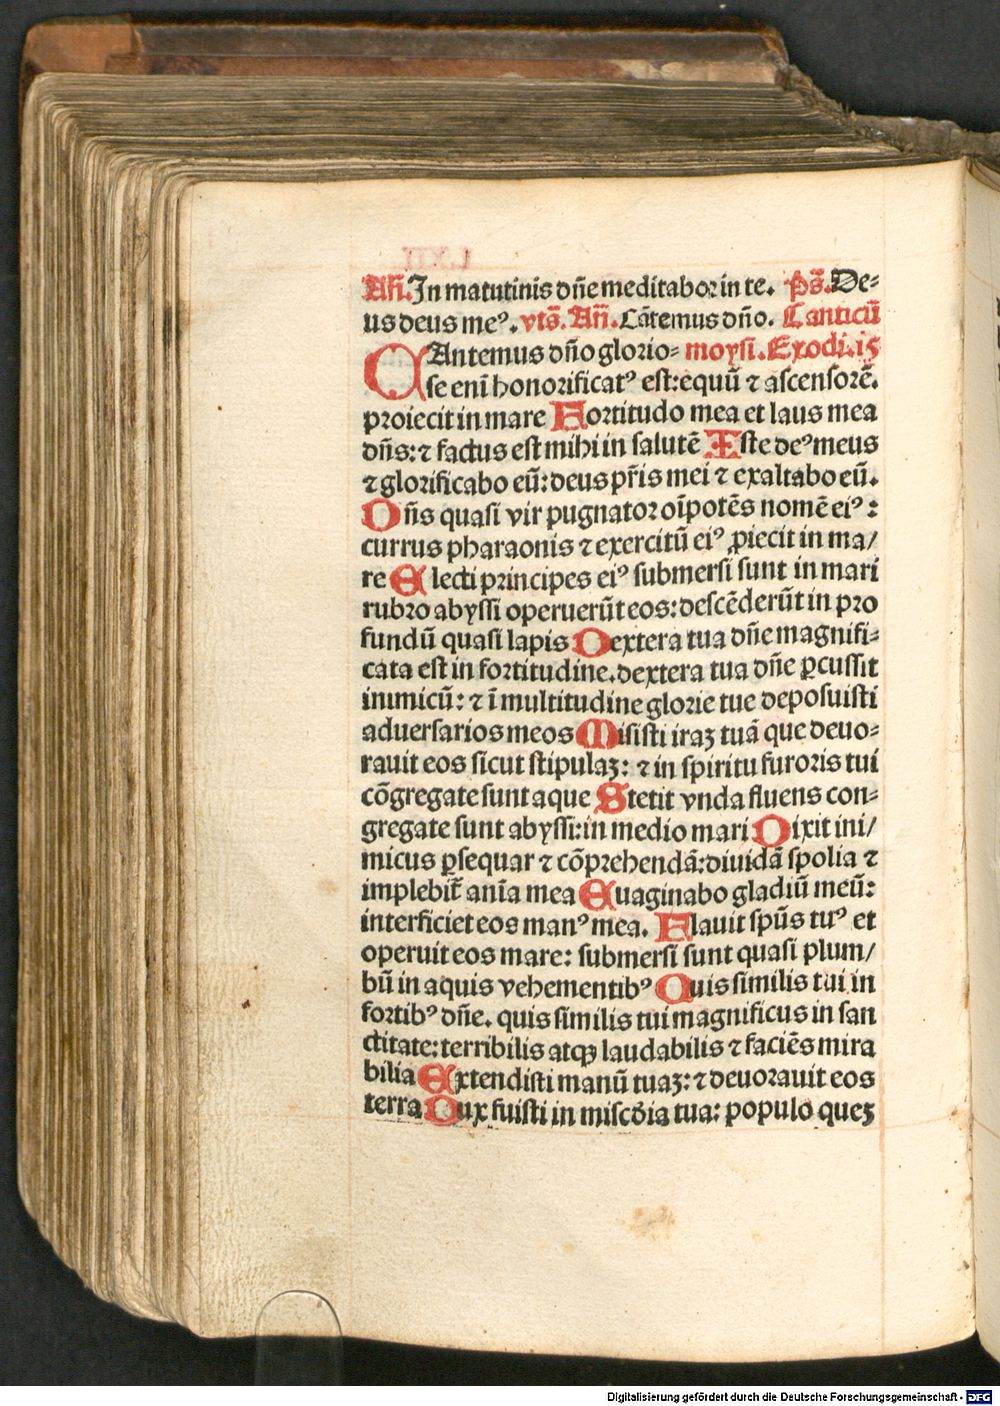 Añ. In matutinis dñe meditabor in te. Ps̄. De⸗
us deus meꝰ. vts̄. Añ. Cãtemus dño. Canticũ
CAntemus dño glorio⸗ moysi. Exodi. 15
se enĩ honorificatꝰ est: equũ ⁊ ascensorẽ.
proiecit in mare Fortitudo mea et laus mea
dñs: ⁊ factus est mihi in salutẽ Iste deꝰ meus
⁊ glorificabo eũ: deus pr̃is mei ⁊ exaltabo eũ.
Dñs quasi vir pugnator oĩpotẽs nomẽ eiꝰ :
currus pharaonis ⁊ exercitũ eiꝰ ꝓiecit in ma/
re Electi principes eiꝰ submersi sunt in mari
rubro abyssi operuerũt eos: descẽderũt in pro
fundũ quasi lapis Dextera tua dñe magnifi⸗
cata est in fortitudine. dextera tua dñe ꝑcussit
inimicũ: ⁊ ĩ multitudine glorie tue deposuisti
aduersarios meos Misisti iraꝫ tuã que deuo⸗
rauit eos sicut stipulaꝫ: ⁊ in spiritu furoris tui
cõgregate sunt aque Stetit vnda fluens con⸗
gregate sunt abyssi: in medio mari Dixit ini/
micus ꝑsequar ⁊ cõprehendã: diuidã spolia ⁊
implebit̃ anĩa mea Euaginabo gladiũ meũ:
interficiet eos manꝰ mea. Flauit spũs tuꝰ et
operuit eos mare: submersi sunt quasi plum/
bũ in aquis vehementibꝰ Quis similis tui in
fortibꝰ dñe. quis similis tui magnificus in san
ctitate: terribilis atqꝫ laudabilis ⁊ faciẽs mira
bilia Extendisti manũ tuaꝫ: ⁊ deuorauit eos
terra Dux fuisti in misc̃dia tua: populo queꝫ
Digitalisierung gefördert durch die Deutsche Forschungsgemeinschaft - DFG